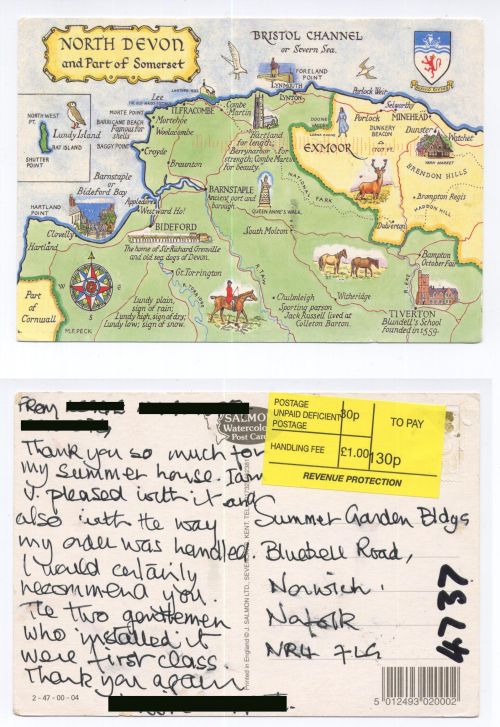 NORTH DEVON
and Part of Somerset
BRISTOL CHANNEL
or Severn Sea.
FORELAND
POINT
LYNMOUTH
LYNTON
Porlock Weir
Selworthy
Porlock
MINEHEAD
DUNKERY
BEACON
1707 FT.
Dunster
Watchet
YARN MARKET
NORTH WEST
PT.
Lundy Island
RAT ISLAND
SHUTTER
POINT
Lee
MORTE POINT
BARRICANE BEACH
Famous for
shells
BAGGY POINT
ILFRACOMBE
Mortehoe
Woolacombe
Croyde
Braunton
Combe
Martin
Hartland
for length;
Berrynarbor for
strength; Combe Martin
for beauty.
DOONE
VALLEY
EXMOOR
NATIONAL PARK
BRENDON HILLS
Brompton Regis
HADDON HILL
Dulverton
Barnstaple
or
Bideford Bay
HARTLAND
POINT
Appledore
Westward Ho!
Clovelly
Hartland
BARNSTAPLE
Ancient port and
borough.
QUEEN ANNE'S WALK.
BIDEFORD
The home of Sir Richard Grenville
and old sea dogs of Devon.
South Molton
Gt. Torrington
R. TORRIDGE
R. TAW
W
E
S
Part
of
Cornwall
M.F. PECK.
Lundy plain,
sign of rain;
Lundy high, sign of dry;
Lundy low, sign of snow.
Chulmleigh
Witheridge
Sporting parson
Jack Russell lived at
Colleton Barton.
Bampton
October Fair
R. EXE
TIVERTON
Blundell's School
founded in 1559.
FROM
Thank you so much for
my summer house. I am
v. pleased with it and
also with the way
my order was handled.
I would certainly
recommend you.
The two gentlemen
who installed it
were first class.
Thank you again
2 - 47 - 00 - 04
SALMON
Watercolo
Post Card
Printed in England © J. SALMON LTD., SEVENOAKS, KENT. TEL.
POSTAGE
UNPAID DEFICIENT
POSTAGE
30p
TO PAY
HANDLING FEE
£1.00
130p
REVENUE PROTECTION
Summer Garden Bldgs
Bluebell Road,
Norwich.
Norfolk
NR4 7LG
4737
5 012493 020002